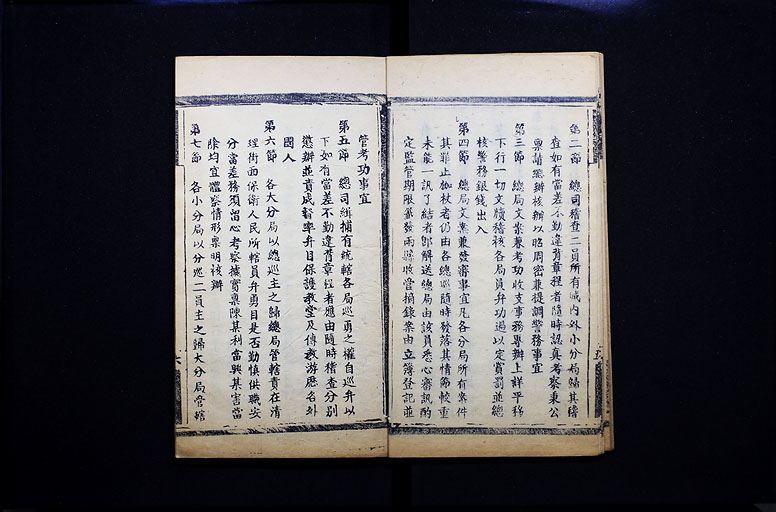 第二節　總司稽查二員所有城內外小分局歸其稽
查如有當差不勤違背章程者隨時認真考察秉公
稟請懲辦核辦以昭周密兼提調警務事宜
第三節　總局文案兼考功收支事務專辦上詳平移
下行一切文牘稽核各局員弁功過以定賞罰並總
核警務銀錢出入
第四節　總局文案兼發審事宜凡各分局所有案件
其罪止枷杖者仍由各總巡隨時發落其情節較重
未能一訊了結者即解送總局由該員悉心審訊酌
定監管期限彙發兩縣收管摘錄案由立簿登記並
管考功事宜
第五節　總司緝捕有統轄各局巡勇之權自巡弁以
下如有當差不勤違背章程者應由隨時稽查分別
懲辦並責成督率弁目保護教堂及傳教游歷各外
國人
第六節　各大分局以總巡主之歸總局管轄責在清
理街面保衛人民所轄員弁勇目是否勤慎供職安
分當差務須留心考察據實稟陳其利當興其害當
除均宜體察情形稟明核辦
第七節　各小分局以分巡二員主之歸大分局管轄